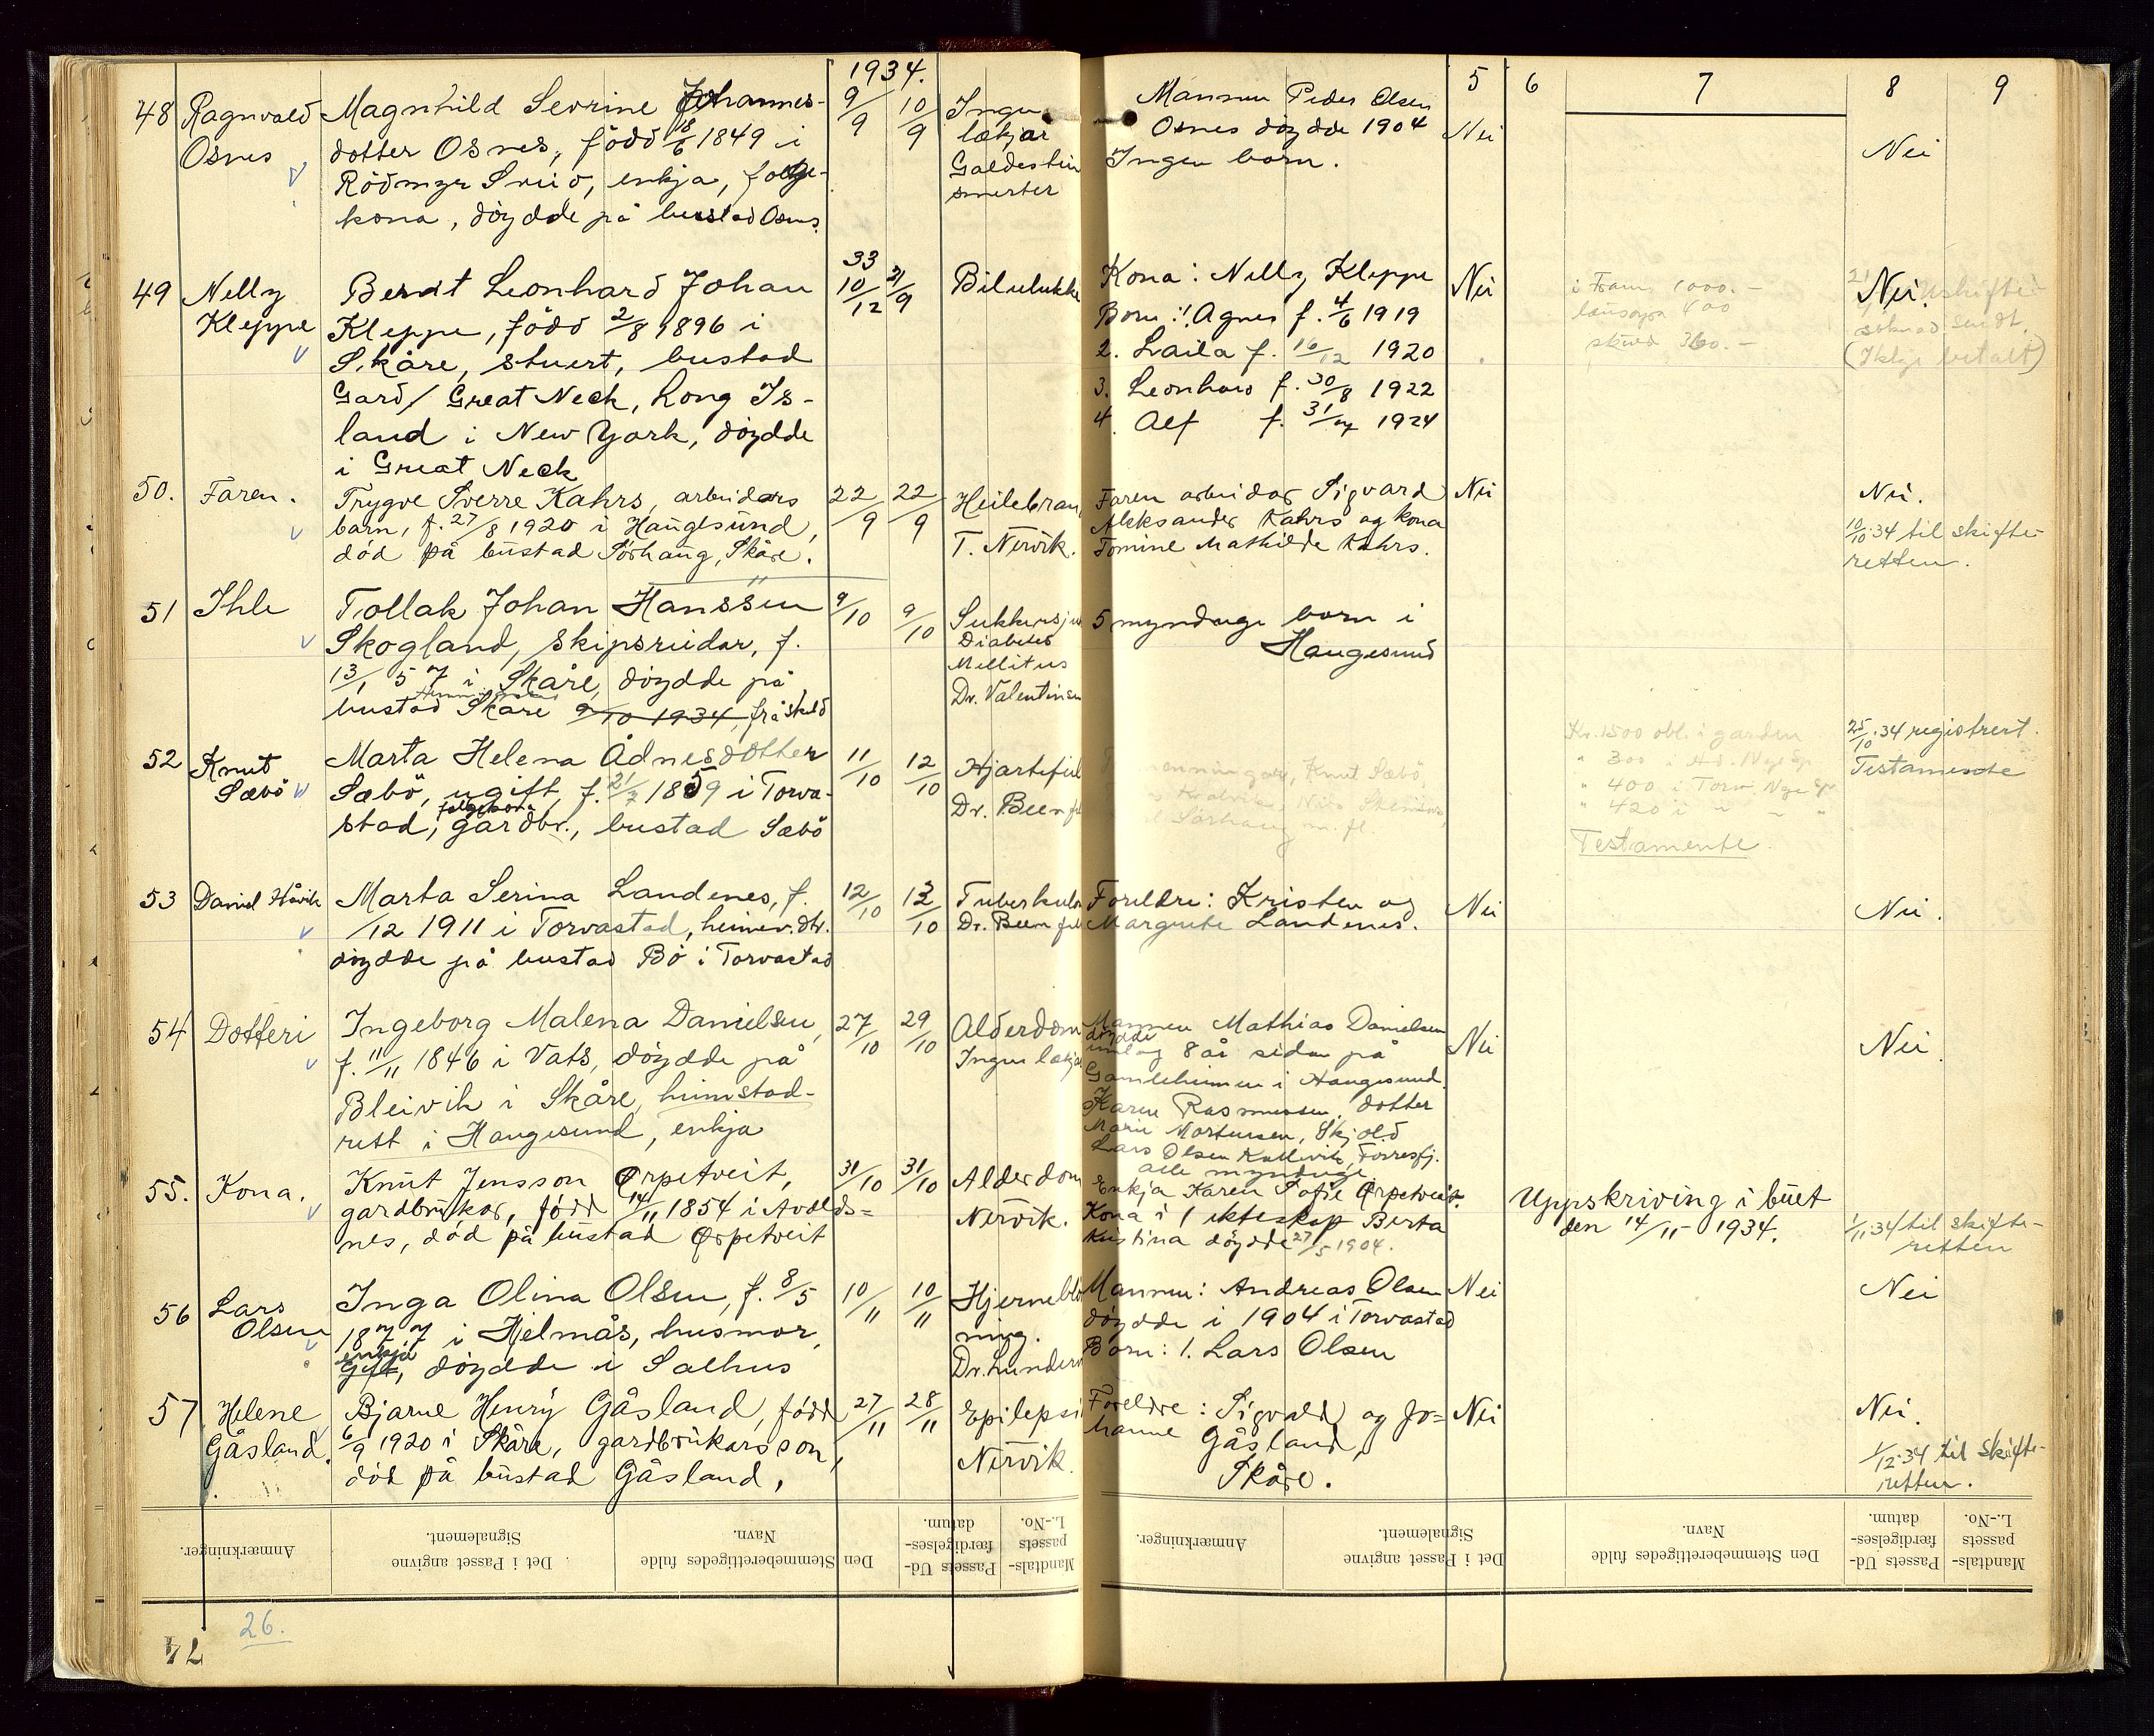 1934.
5 6 7 8 9
48 Ragnvald Osnes
Magnhild Sevrine Johannes-
dotter Osnes, född 18/6 1849 i
enkja,
kona, döydde på bustad Osnes.
9/9 10/9
Ingen
lækjar
Galdestein
smerter
Mannen Peder Olsen
Osnes döydde 1904
Ingen born.
Nei
Nei
49 Nelly Kleppe
Berdt Leonhard Johan
Kleppe, född 2/8 1896 i
Skåre, stuert, bustad
Gard/ Great Neck, Long Is-
land i New York, döydde
i Great Neck
33
10/12 21/9
Bilulukke
Kona: Nelly Kleppe
Born: 1. Agnes f. 4/6 1919
2. Laila f. 16/12 1920
3. Leonhard f. 30/8 1922
4. Alf f. 31/ 1924
Nei
i Fram 1000.-
400
skuld 360.-
Nei.
(Ikkje betalt)
50. Faren.
Trygve Sverre Kahrs, arbeidars
barn, f. 27/8 1920 i Haugesund,
död på bustad Sörhaug, Skåre.
22/9 22/9
Heilebran
T. Nervik.
Faren arbeidar Sigvard
Aleksander Kahrs og kona
Tomine Mathilde Kahrs.
Nei
Nei.
10/10.34 til skifte-
retten.
51 Ihle
Tollak Johan Hanssen
Skogland, skipsreidar, f.
13/1 57 i Skåre, döydde på
bustad Skåre 9/10 1934, frå skild
9/10 9/10
Sukkersju
Diabetes
Mellitus
Dr. Valentinsen
5 myndige born i
Haugesund
52 Knut Sæbö
Marta Helena Ådnesdotter
Sæbö, ugift, f. 21/7 1859 i Torva-
folgekona
stad, gardbr., bustad Sæbö
11/10 12/10
Hjartefeil
Dr. Beenf
Knut Sæbö,
Sörhaug m. fl.
Kr. 1500 obl. i garden
" 300 i
" 400 i Torv.
" 420 i
Testamente.
25/10.34 registrert.
Testamente
53 Daniel Håvik
Marta Serina Landenes, f.
/12 1911 i Torvastad, heimev. dtr.
döydde på bustad Bö i Torvastad
12/10 13/10
Tuberkulo
Dr. Beenfel
Foreldre: Kristen og
Margrete Landenes.
Nei
Nei.
54 Dotteri
Ingeborg Malena Danielsen,
f. 11/11 1846 i Vats, döydde på
Bleivik i Skåre, heimstad-
rett i Haugesund, enkja
27/10 29/10
Alderdom
Ingen lækja
Mannen Mathias Danielsen
döydde
umlag 8 år sidan på
Gamleheimen i Haugesund.
Karen Rasmussen, dotter
Marie Mortensen, Skjold
Lars Olsen Kallevik, Förresfj.
alle myndige
Nei
Nei.
55. Kona.
Knut Jensson Ørpetveit,
gardbrukar, född 14/11 1854 i Avalds=
nes, död på bustad Ørpetveit
31/10 31/10
Alderdom
Nervik.
Enkja Karen Sofie Ørpetveit.
Kona i 1 ekteskap Berta
Kristina döydde 27/5 1904.
Uppskriving i búet
den 14/11 1934.
1/11.34 til skifte-
retten
56 Lars Olsen
Inga Olina Olsen, f. 8/5
1877 i Hjelmås, husmor,
enkja
gift, döydde i Salhus
10/11 10/11
Hjerneblö
ning.
Dr. Lunderv
Mannen: Andreas Olsen
döydde i 1904 i Torvastad
Born: 1. Lars Olsen
Nei
Nei
57 Helene Gåsland.
Bjarne Henry Gåsland, född
6/9 1920 i Skåre, gardbrukarsson,
död på bustad Gåsland,
27/11 28/11
Epilepsi
Nervik.
Foreldre: Sigvald og Jo=
hanne Gåsland,
Skåre.
Nei
Nei.
1/12.34 til skifte-
retten.
Anmærkninger.
Det i Passet angivne
Signalement.
Den Stemmeberettigedes fulde
Navn.
Passets Ud-
færdigelses-
datum.
Mandtals-
passets
L.-No.
Anmærkninger.
Det i Passet angivne
Signalement.
Den Stemmeberettigedes fulde
Navn.
Passets Ud-
færdigelses-
datum.
Mandtals-
passets
L.-No.
26.
74